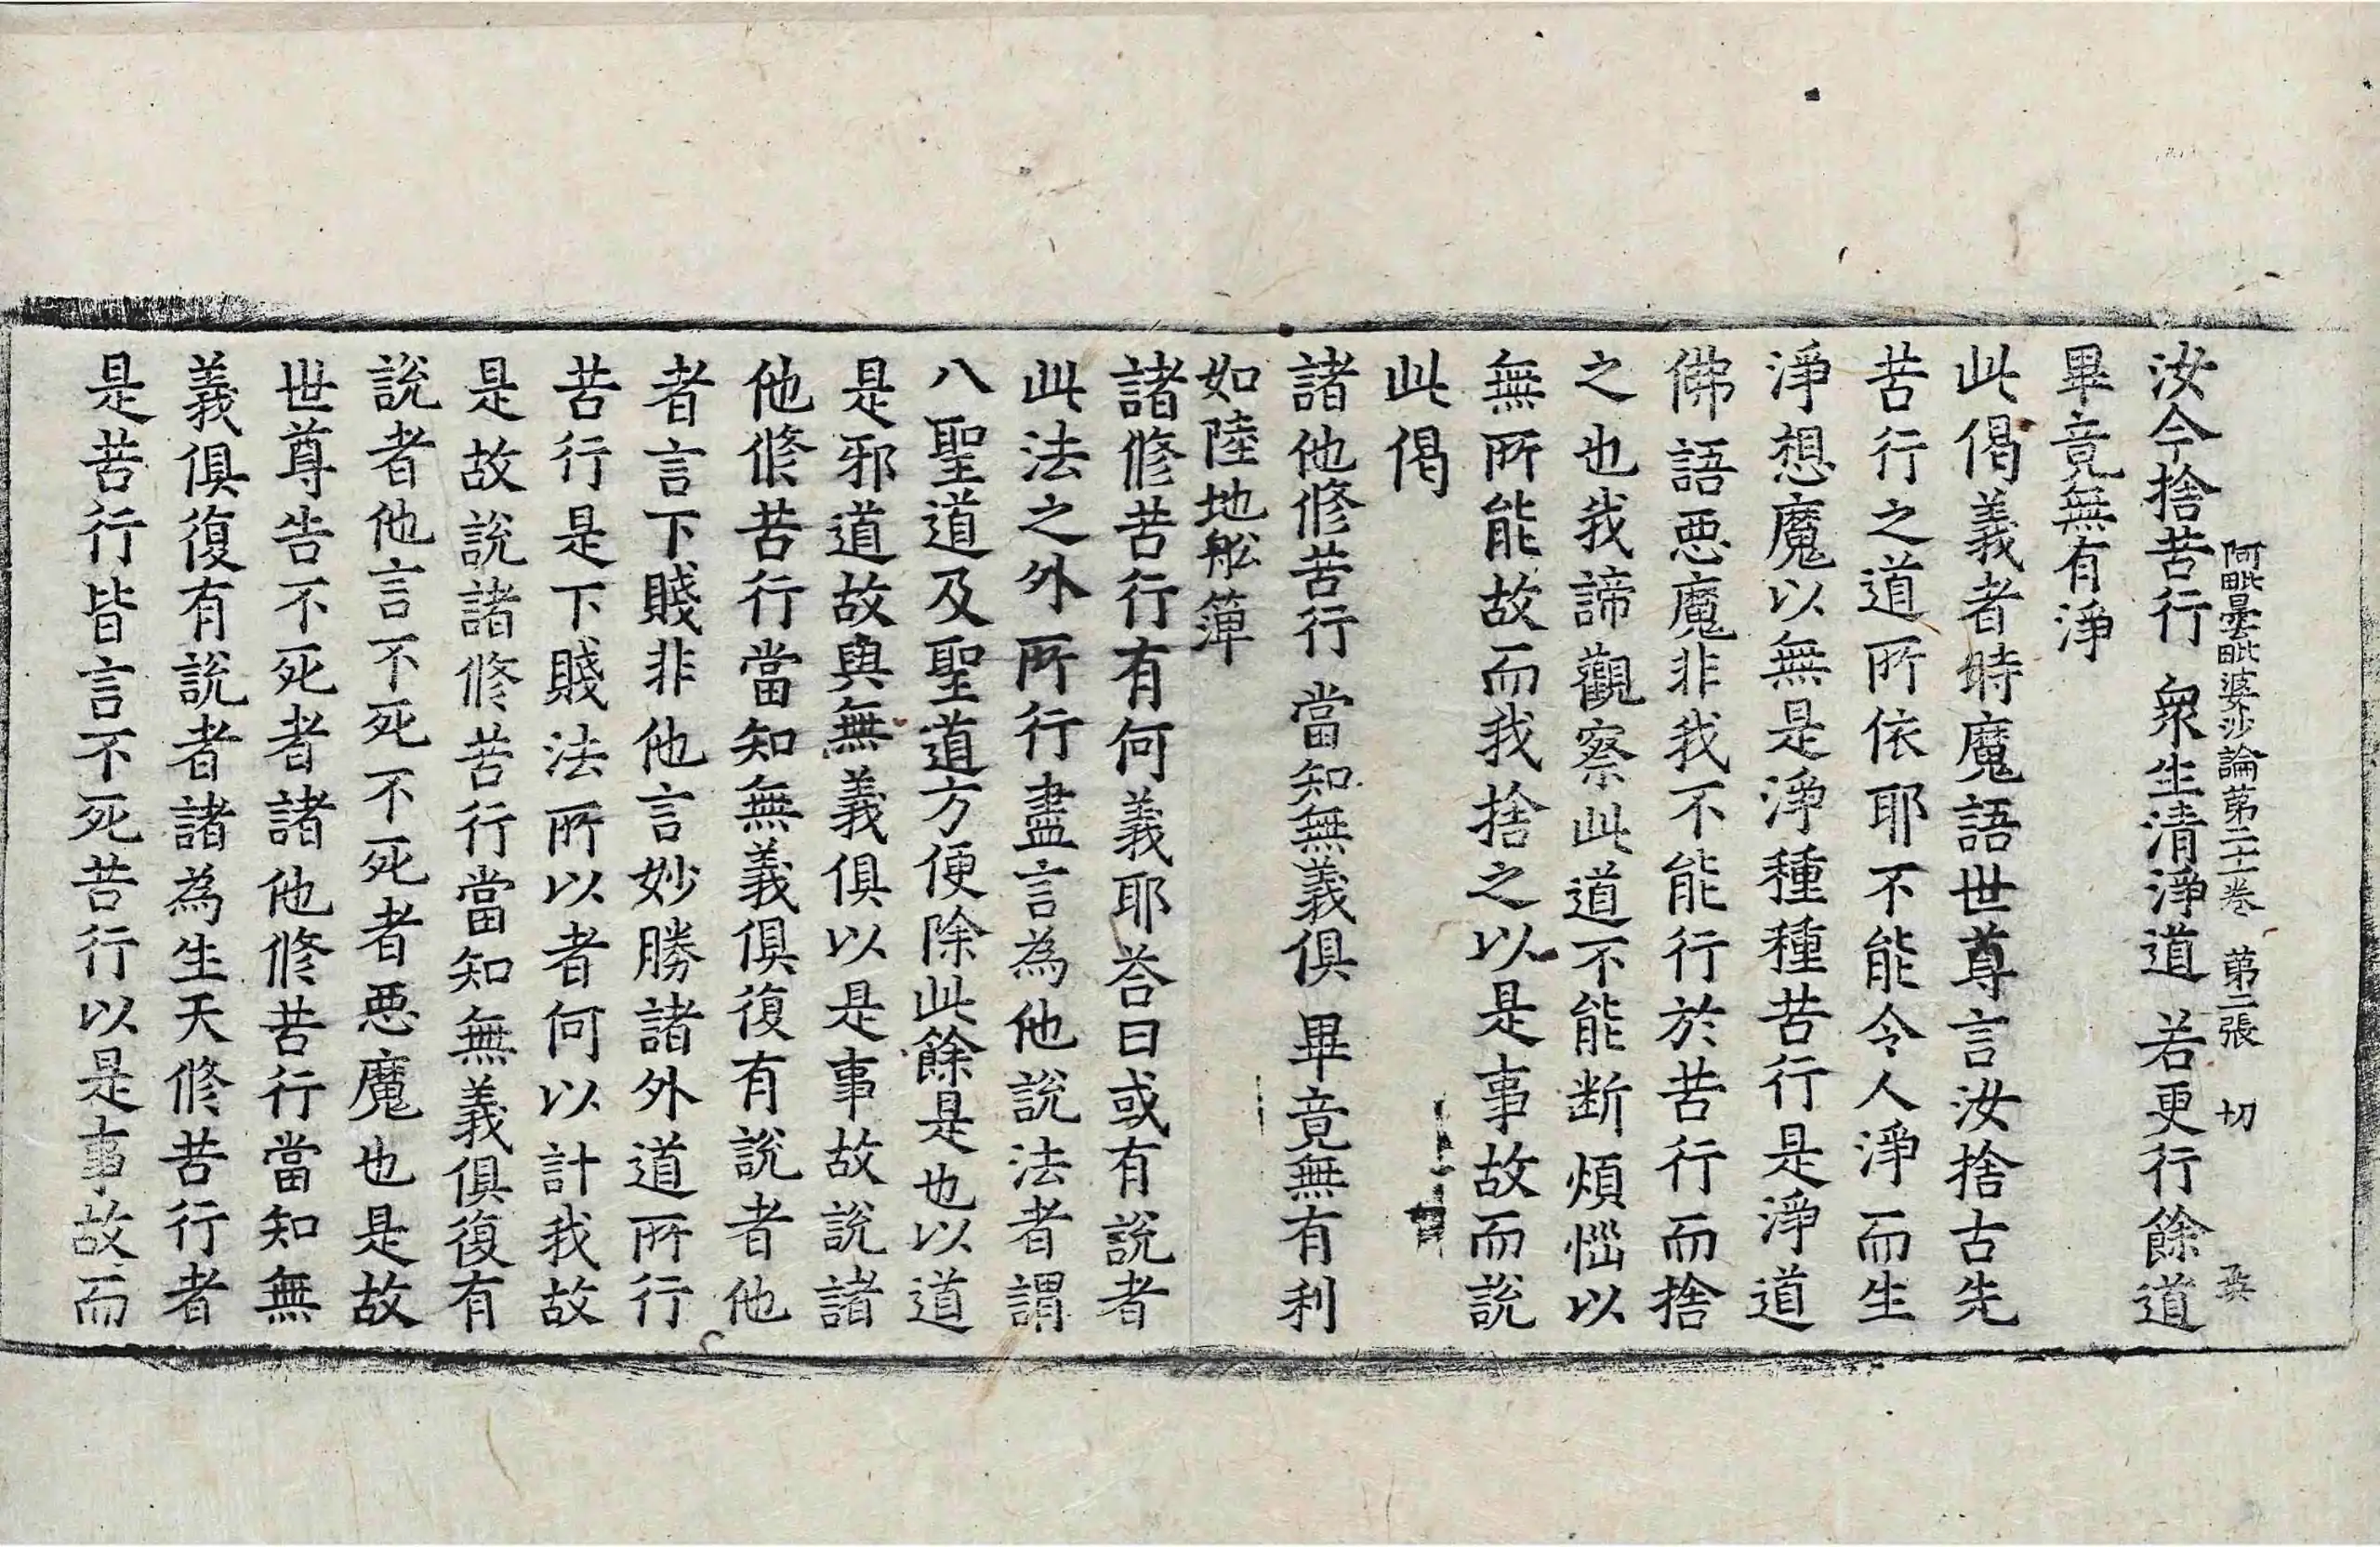 阿毗曇毗婆沙論第二十一卷　第二張　切
汝今捨苦行　衆生清淨道　若更行餘道
畢竟無有淨
此偈義者時魔語世尊言汝捨古先
苦行之道所依耶不能令人淨而生
淨想魔以無是淨種種苦行是淨道
佛語惡魔非我不能行於苦行而捨
之也我諦觀察此道不能断煩惱以
無所能故而我捨之以是事故而說
此偈
諸他修苦行　當知無義俱　畢竟無有利
如陸地舩簰
諸修苦行有何義耶荅曰或有說者
此法之外所行盡言為他說法者謂
八聖道及聖道方便除此餘是也以道
是邪道故與無義俱以是事故說諸
他修苦行當知無義俱復有說者他
者言下賤非他言妙勝諸外道所行
苦行是下賤法所以者何以計我故
是故說諸修苦行當知無義俱復有
說者他言不死不死者惡魔也是故
世尊告不死者諸他修苦行當知無
義俱復有說者諸為生天修苦行者
是苦行皆言不死苦行以是事故而